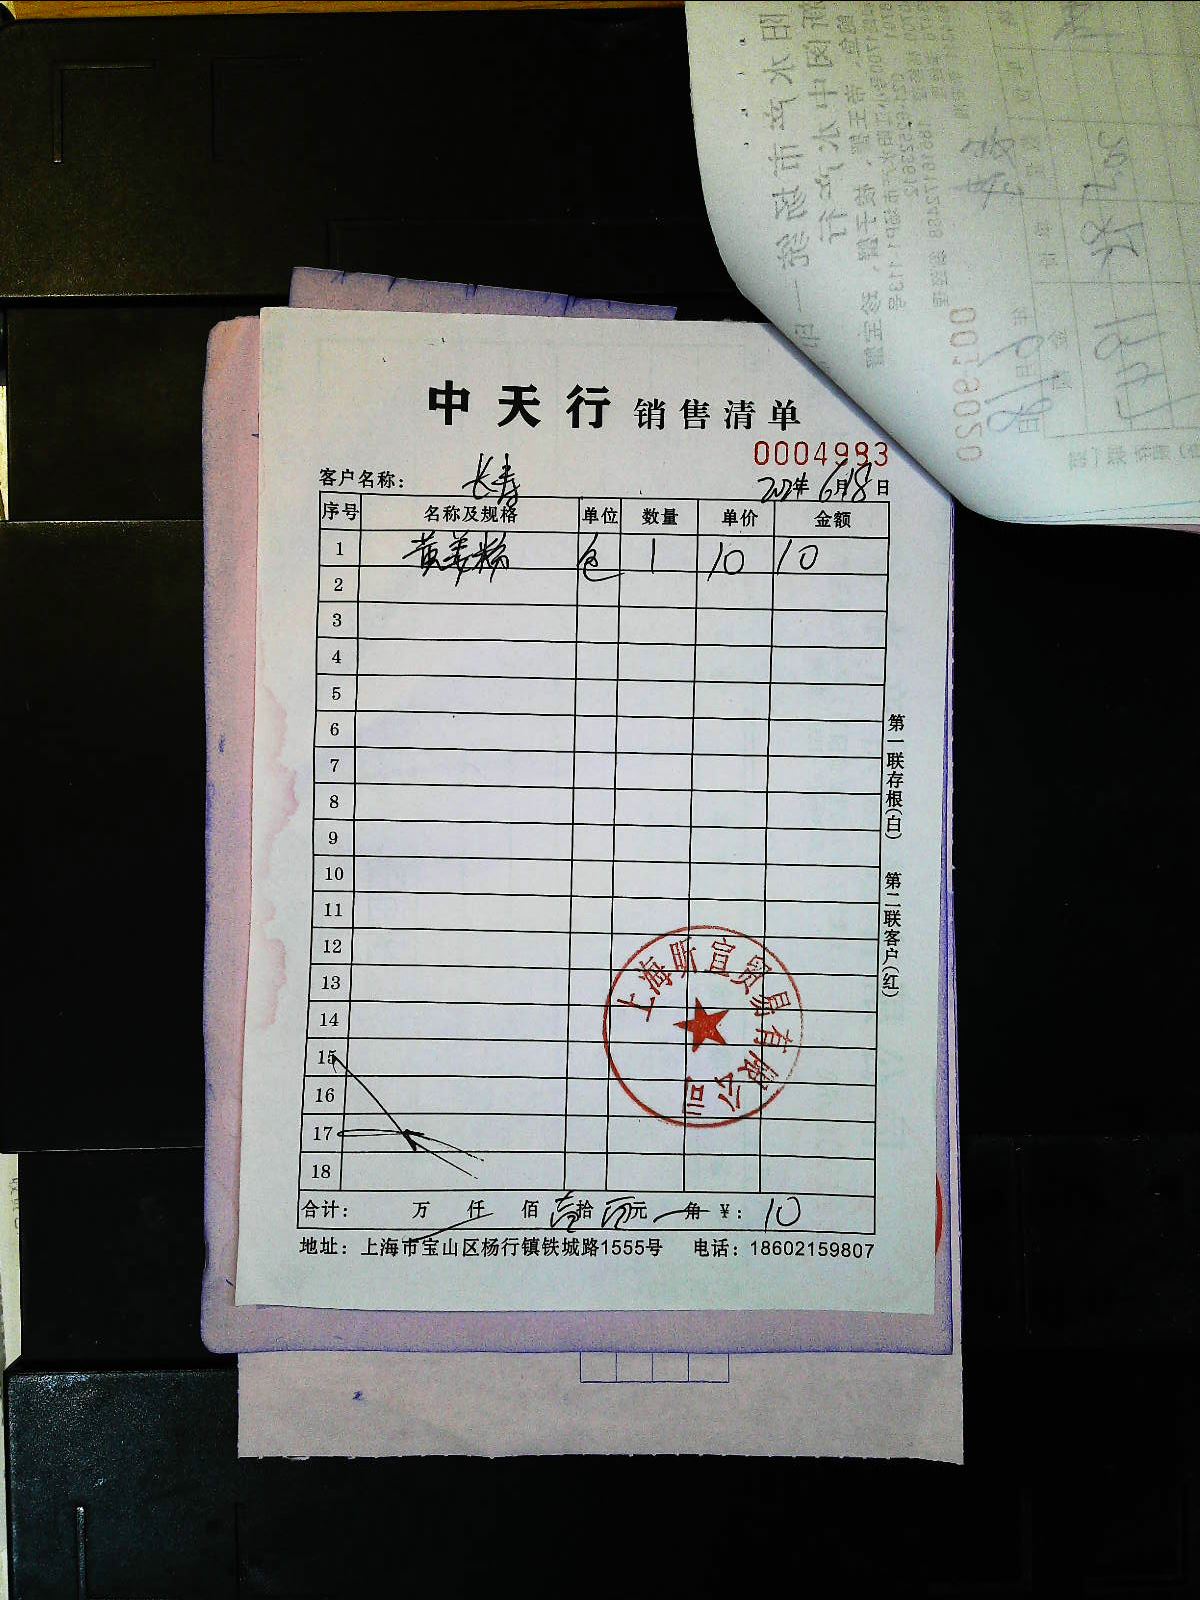 中天行 销售清单
0004983
客户名称： 长寿 2021年 6月18日
序号 名称及规格 单位 数量 单价 金额
1 黄姜粉 包 1 10 10
2
3
4
5
6
7
8
9
10
11
12
13
14
15
16
17
18
合计： 万 仟 佰 壹拾 元 角 ￥： 10
地址：上海市宝山区杨行镇铁城路1555号 电话：18602159807
第一联存根(白) 第二联客户(红)
上海昕宣贸易有限公司
0019020